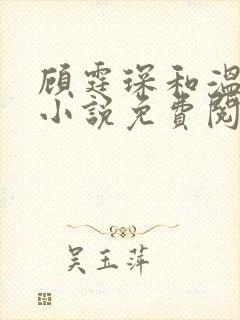 顾霆琛和温
小说免费阅
吴玉萍